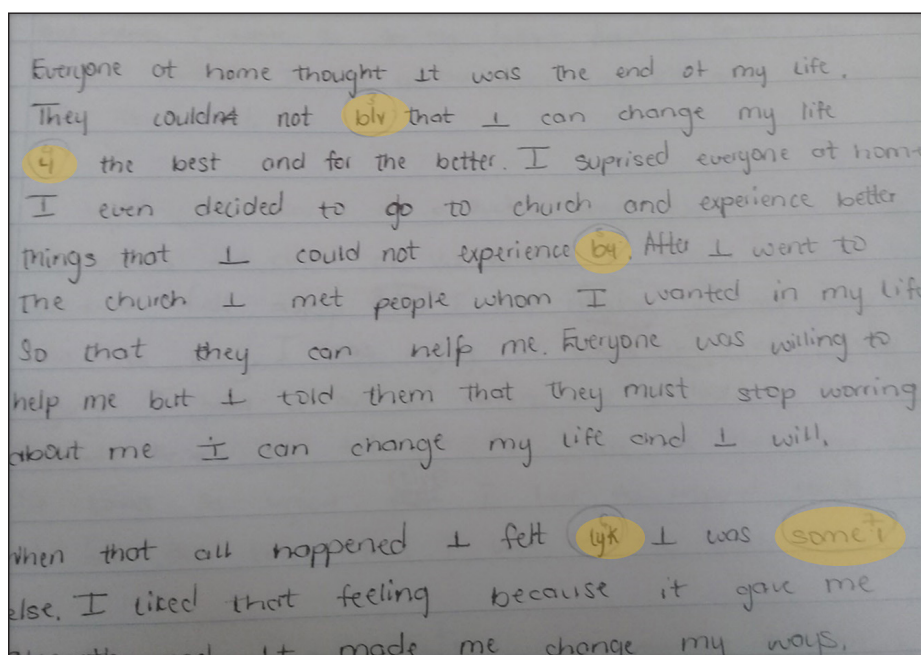 Everyone at home thought it was the end of my life.
They couldnt not blv that I can change my life
4 the best and for the better. I suprised everyone at hom
I even decided to go to church and experience better
things that I could not experience b4. After I went to
the church I met people whom I wanted in my life
So that they can help me. Everyone was willing to
help me but I told them that they must stop worring
about me I can change my life and I will.
when that all happened I felt lyk I was some1
else. I liked that feeling because it gave me
it made me change my ways.